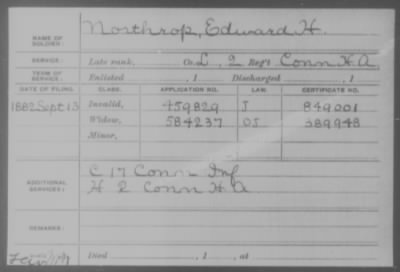 NAME OF SOLDIER: Northrop, Edward H.
SERVICE: Late rank, Co. L, 2 Reg't Conn H.A.
TERM OF SERVICE: Enlisted , 1 Discharged , 1
DATE OF FILING. CLASS. APPLICATION NO. LAW. CERTIFICATE NO.
1882 Sept 13 Invalid, 459829 J 849001
Widow, 584237 389948
Minor,
ADDITIONAL SERVICES: C 17 Conn Inf
H 2 Conn H A
REMARKS:
Died , 1 , at